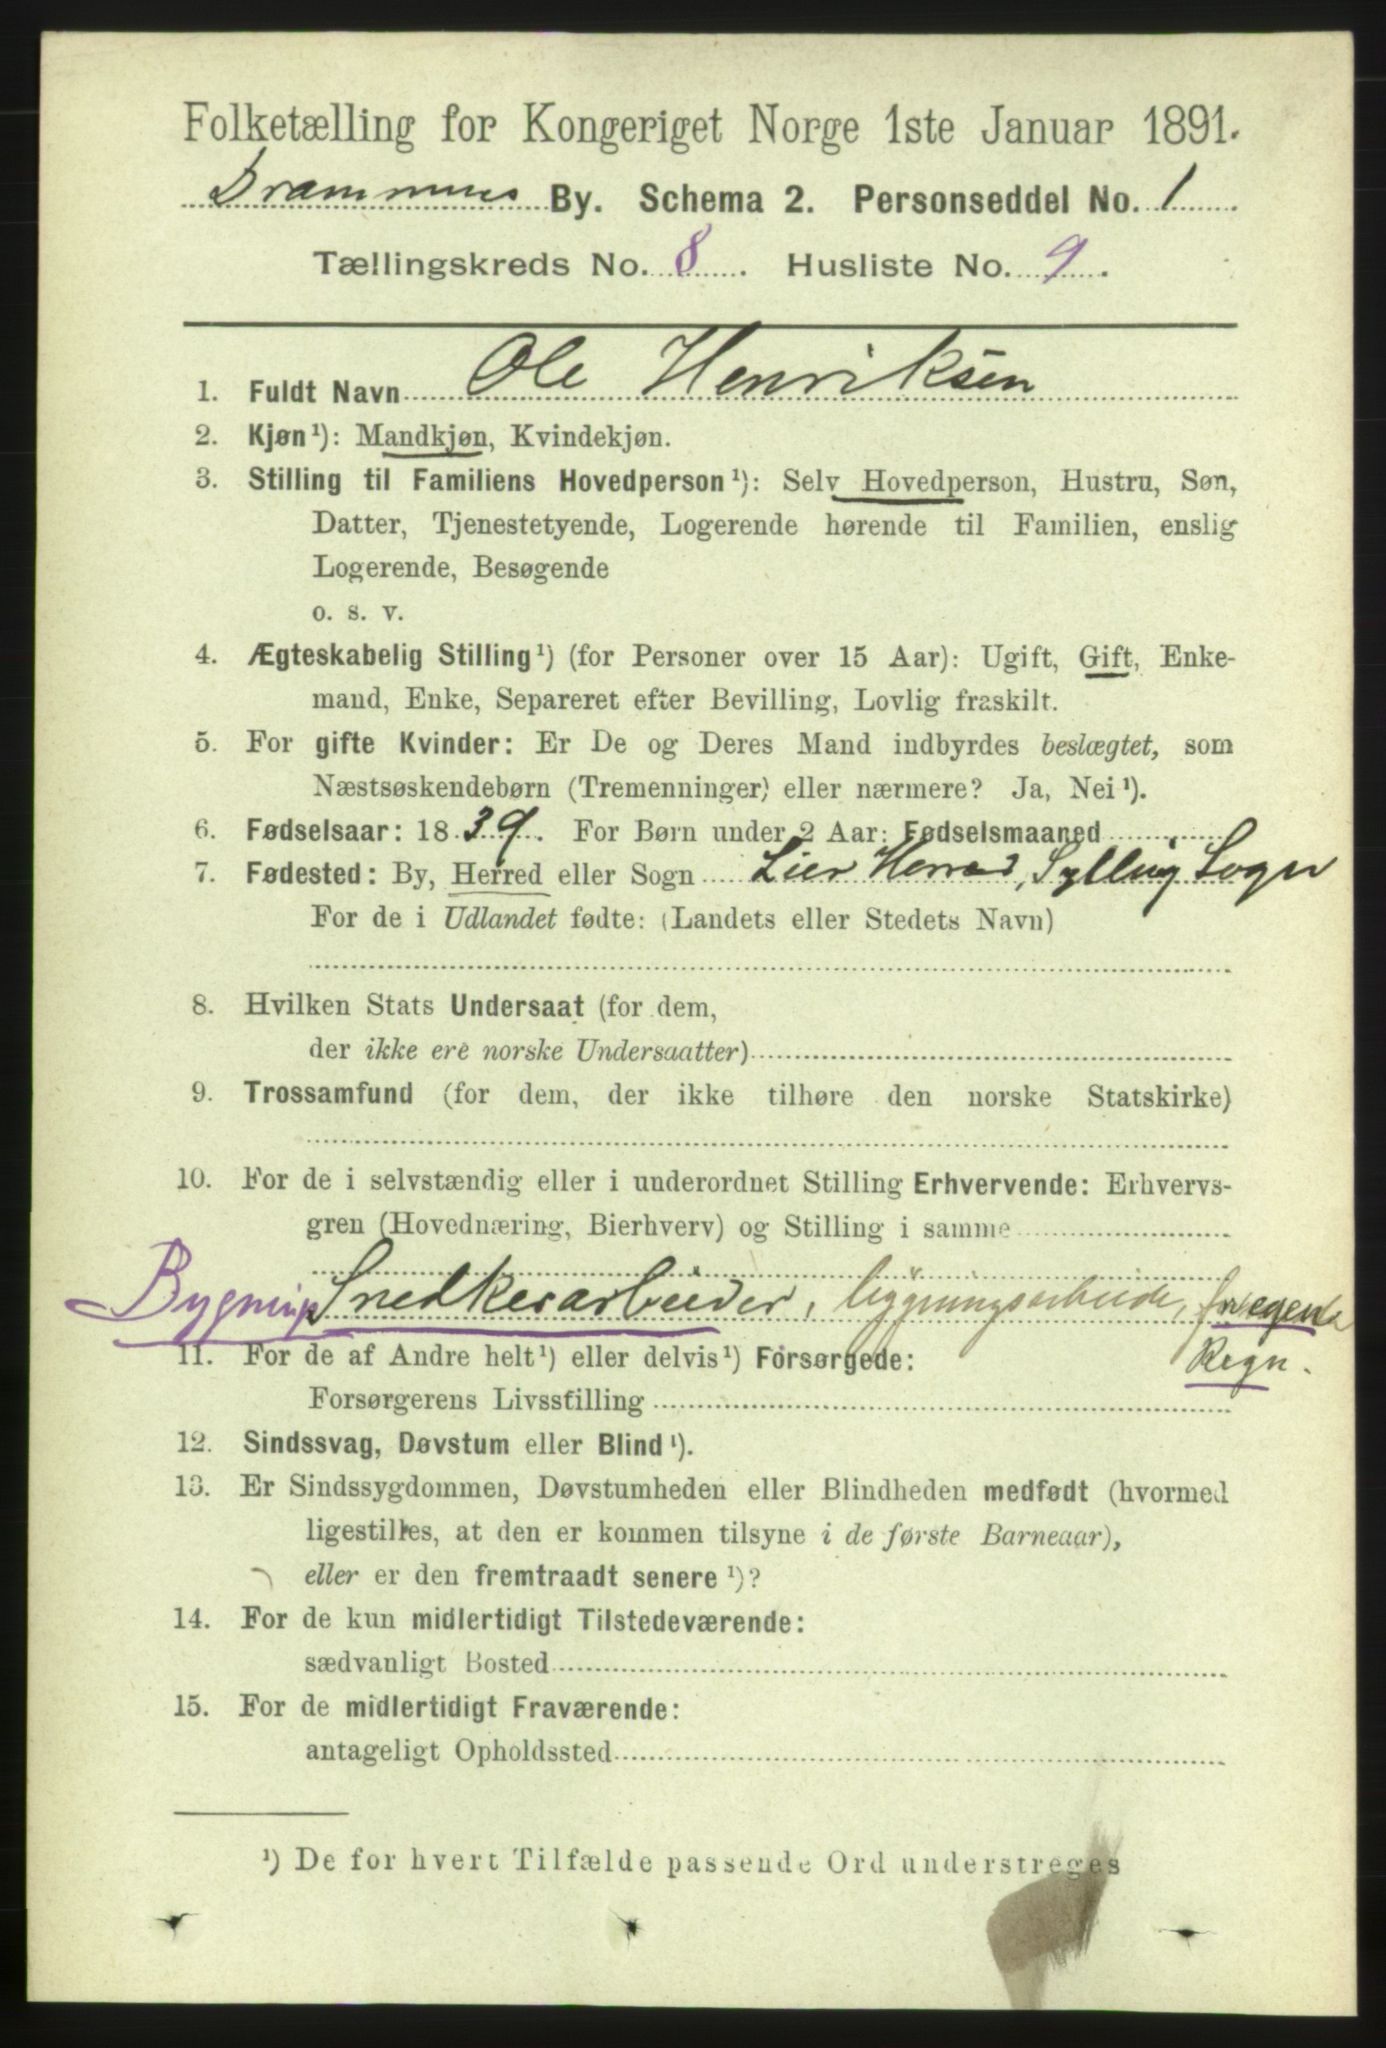 Folketælling for Kongeriget Norge 1ste Januar 1891.
Drammens By. Schema 2. Personseddel No. 1
Tællingskreds No. 8. Husliste No. 9.
1. Fuldt Navn Ole Henriksen
2. Kjøn¹): Mandkjøn, Kvindekjøn.
3. Stilling til Familiens Hovedperson¹): Selv Hovedperson, Hustru, Søn,
Datter, Tjenestetyende, Logerende hørende til Familien, enslig
Logerende, Besøgende
o. s. v.
4. Ægteskabelig Stilling¹) (for Personer over 15 Aar): Ugift, Gift, Enke-
mand, Enke, Separeret efter Bevilling, Lovlig fraskilt.
5. For gifte Kvinder: Er De og Deres Mand indbyrdes beslægtet, som
Næstsøskendebørn (Tremenninger) eller nærmere? Ja, Nei¹).
6. Fødselsaar: 1839. For Børn under 2 Aar: Fødselsmaaned
7. Fødested: By, Herred eller Sogn Lier Herred, Sylling Sogn
For de i Udlandet fødte: (Landets eller Stedets Navn)
8. Hvilken Stats Undersaat (for dem,
der ikke ere norske Undersaatter)
9. Trossamfund (for dem, der ikke tilhøre den norske Statskirke)
10. For de i selvstændig eller i underordnet Stilling Erhvervende: Erhvervs-
gren (Hovednæring, Bierhverv) og Stilling i samme
Bygnings Snedkerarbeider, bygningsarbeide, for egen
Regn.
11. For de af Andre helt¹) eller delvis¹) Forsørgede:
Forsørgerens Livsstilling
12. Sindssvag, Døvstum eller Blind¹).
13. Er Sindssygdommen, Døvstumheden eller Blindheden medfødt (hvormed
ligestilles, at den er kommen tilsyne i de første Barneaar),
eller er den fremtraadt senere¹)?
14. For de kun midlertidigt Tilstedeværende:
sædvanligt Bosted
15. For de midlertidigt Fraværende:
antageligt Opholdssted
¹) De for hvert Tilfælde passende Ord understreges